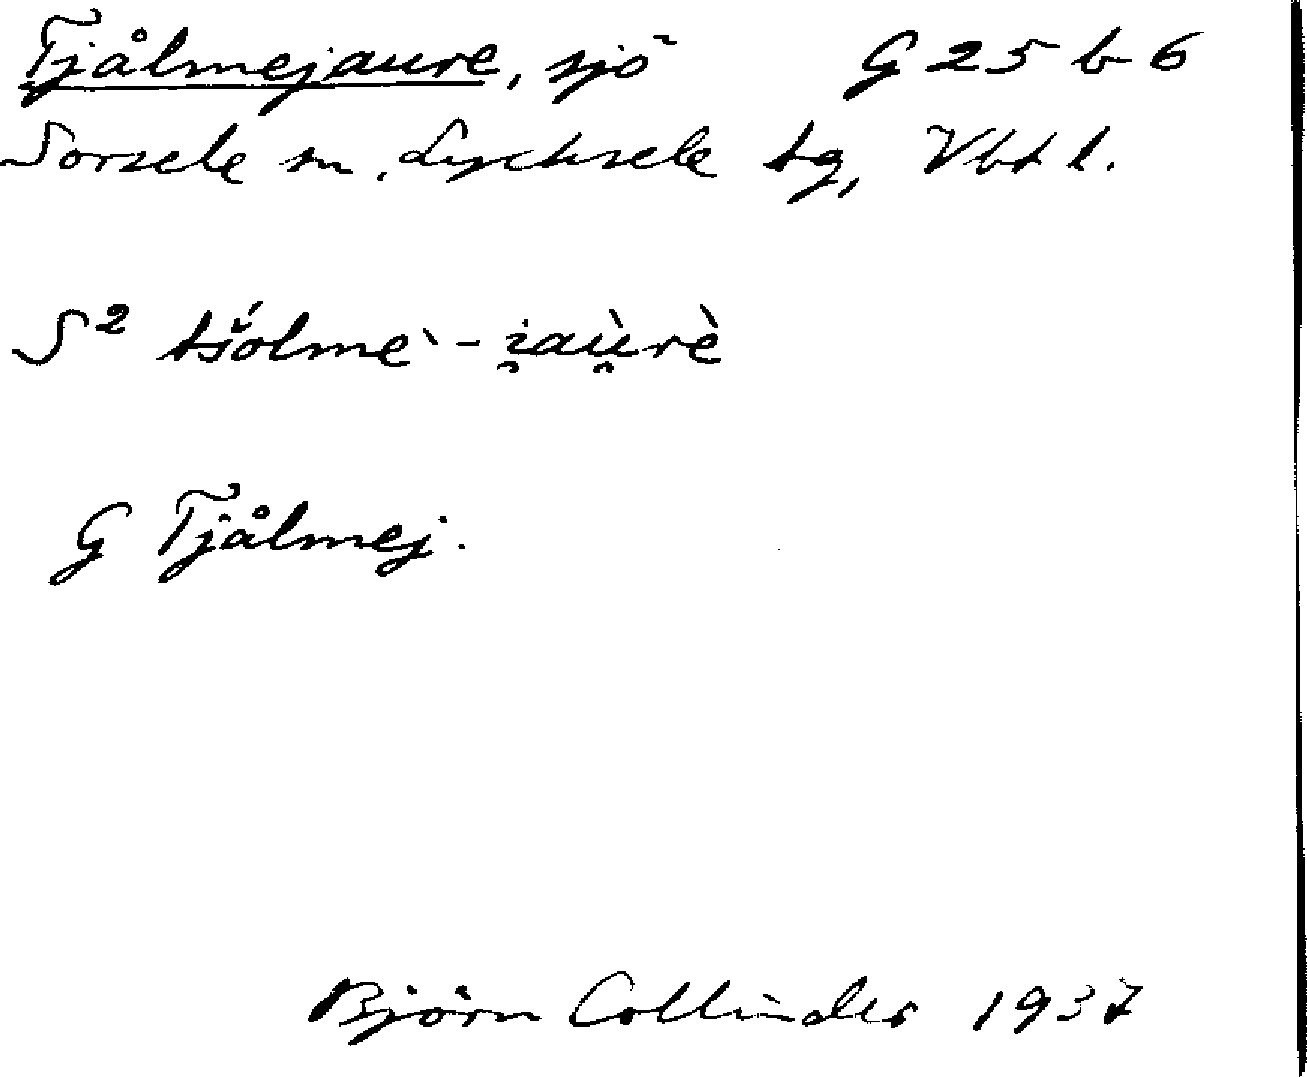 Tjålmejaure, sjö G 25 b 6
Sorsele sn, Lycksele tg, Vbt l.
S² tšólmè-i̯aù̯rè
G Tjålmej.
Björn Collinder 1937